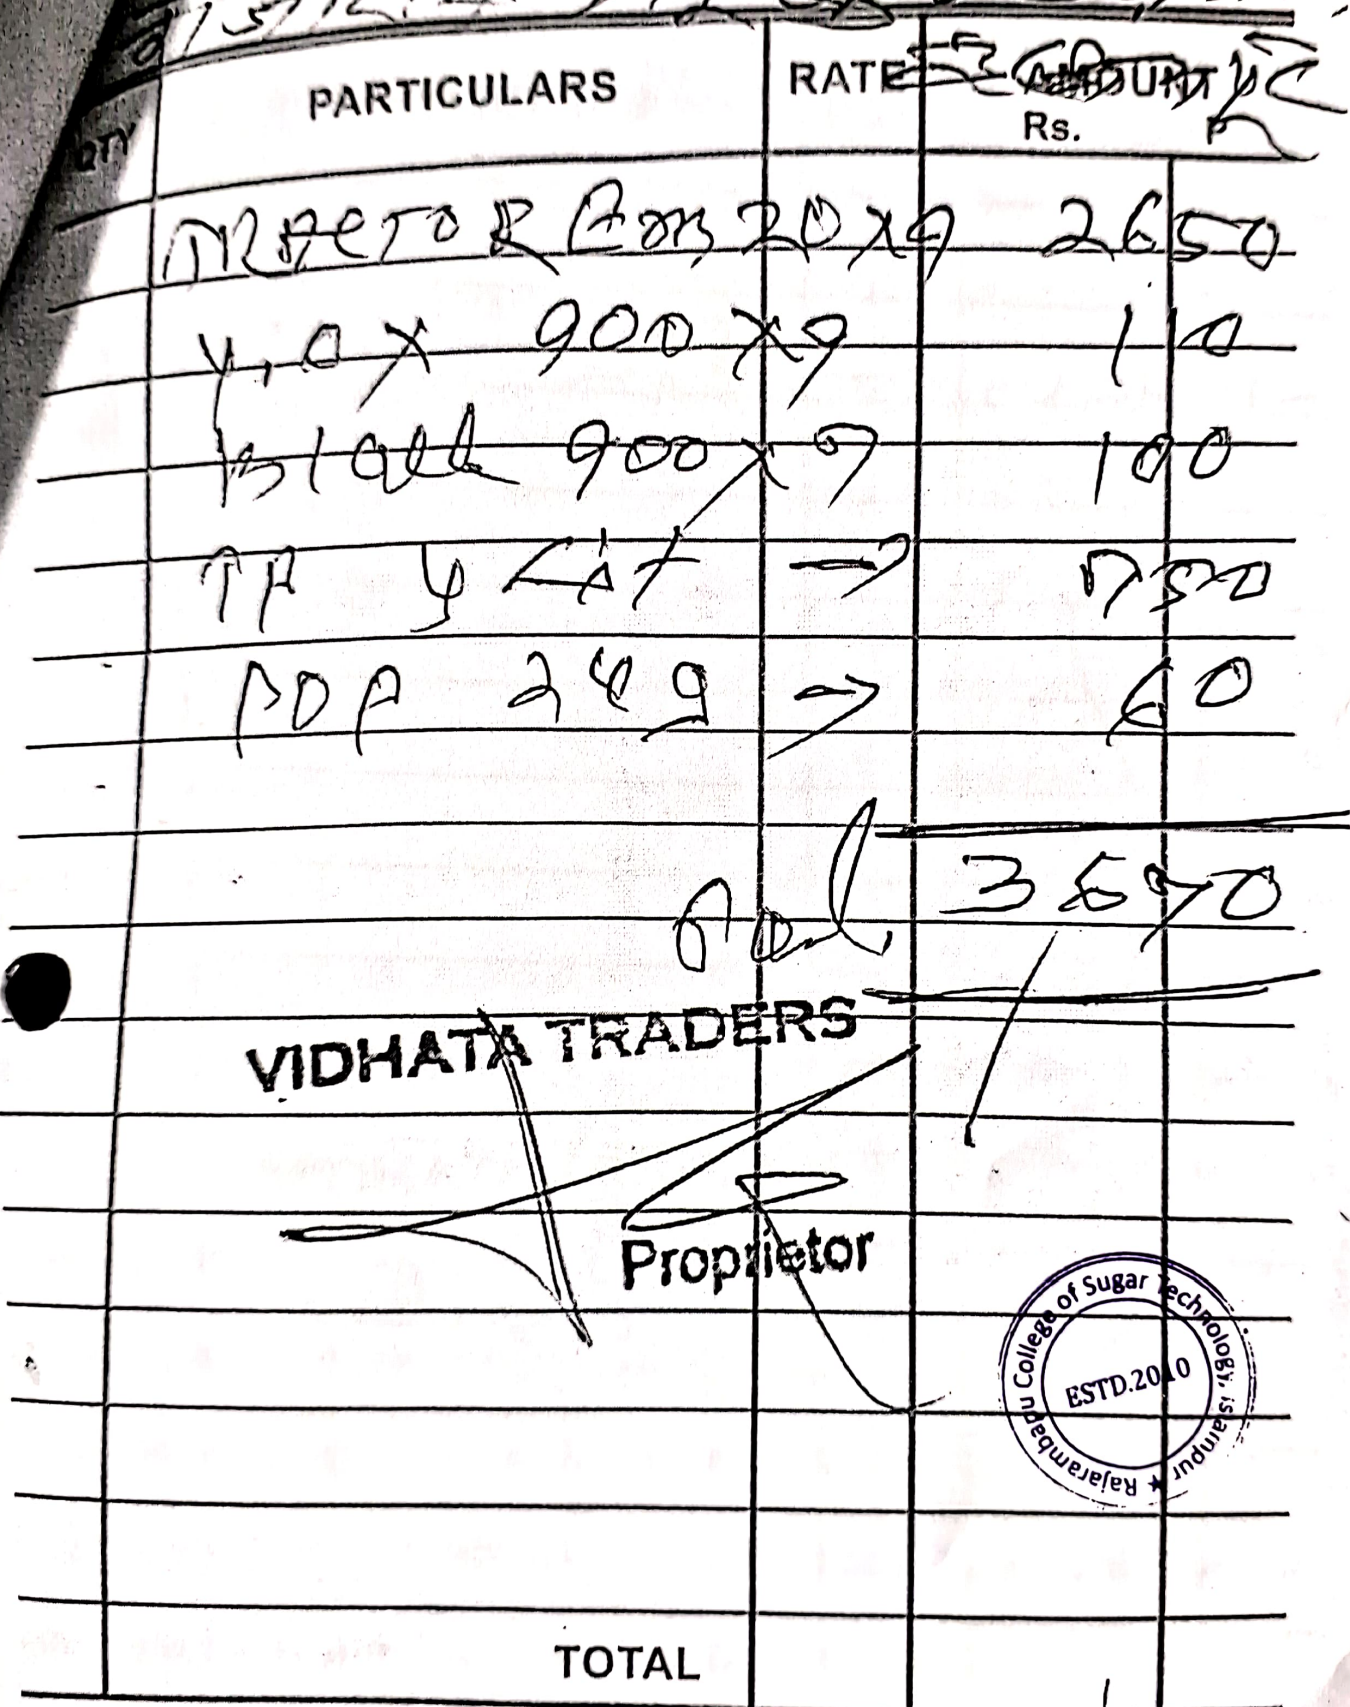 PARTICULARS RATE AMOUNT
QTY Rs. P
TRACTOR 20 x 9 2650
y, o x 900 x 9 110
Black 900 x 9 100
TP y Lit → 750
POP 249 → 60
Paid 3670
VIDHATA TRADERS
Proprietor
Rajarambapu College of Sugar Technology, Islampur ★
ESTD.2010
TOTAL